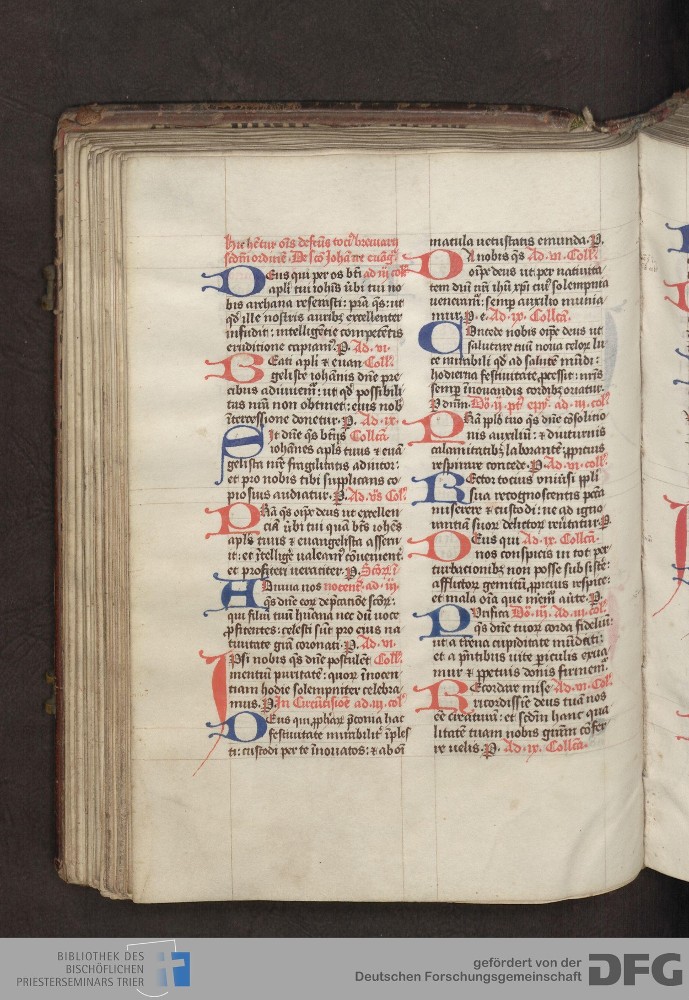 Hic hētur oīs defcūs toci' breuiarij
scdm ordinē De scō Johāne euāg'
DEus qui per os bti ad iij col'
apli tui iohīs ūbi tui no
bis archana reserasti: pta q̄s: ut
qd ille nostris aurib; excellenter
infudit: intelligētie competētis
eruditione capiam'. P. Ad. vi.
BEati apli et euan Coll'.
geliste iohānis dn̄e pre
cibus adiuuem': ut qd possibili
tas nr̄a non obtinet: eius nob'
ītercessione donetur. P. Ad. ix.
SIt dn̄e q̄s btūs Collcā
iohānes apls tuus et euā
gelista nr̄e fragilitatis adiutor:
et pro nobis tibi supplicans co
piosius audiatur. P. Ad. v̄s Col'.
PRā q̄s om̄ps deus ut excellen
ciā ūbi tui quā btūs iohēs
apls tuus et euangelista asseru
it: et ītelligē ualeam' cōuenient
et profiteri ueraciter. P. Scōr ī
ADiuua nos nocent' ad. iij.
q̄s dn̄e eor dep̄catiōe scōr:
qui filiū tuū hūana nec dū uoce
profitentes: celesti sūt pro eius na
tiuitate grā coronati. P. Ad. vi.
IPsi nobis q̄s dn̄e postulēt Coll'.
mentiū puritatē: quor īnocen
tiam hodie solempniter celebra
mus. P. In Circūcisiōe ad. iij. col'
DEus qui p̄phār p̄conia hac
festiuitate mirabilit' īples
ti: custodi per te īnouatos: et ab oī
macula uetustatis emunda. P.
DA nobis q̄s Ad. vi. Coll'.
om̄pe deus ut per natiuita
tem dn̄i nr̄i ihū xpi cui' solempnia
ueneram': semp auxilio munia
mur. P. e. Ad. ix. Collcā.
COncede nobis om̄pe deus ut
salutare tuū noua celor lu
ce mirabili qd ad salutē mūdi:
hodierna festiuitate processit: nr̄is
semper īnouandis cordib; oriatur.
P dnm. Dō. ij. pt' epy. ad. iij. col'.
PRā pplo tuo q̄s dn̄e cōsolatio
nis auxiliū: et diuturnis
calamitatib; laborantē: ppicius
respirare concede. P. Ad. vi. coll'.
REctor tocius uniūsi ppli
sua recognoscentis pctā
miserere et custodi: ne ad igno
rantiā suor delictor reūtatur. P.
DEus qui Ad. ix. Collcā.
nos conspicis in tot per
turbacionib; non posse subsistē:
afflictor gemitū ppicius respice:
et mala oīa que merem' aūte. P.
PUrifica Dō. iij. Ad. iij. col'.
q̄s dn̄e tuor corda fideliū:
ut a trena cupiditate mūdati:
et a p̄ntibus uite piculis exua
mur et ppetuis donis firmem'.
REcordare mīse Ad. vi. Col'.
ricordissie deus tuā nos
eē creaturā: et scdm hanc qua
litatē tuam nobis grām cōfer
re uelis. P. Ad. ix. Collcā.
BIBLIOTHEK DES
BISCHÖFLICHEN
PRIESTERSEMINARS TRIER
gefördert von der
Deutschen Forschungsgemeinschaft
DFG